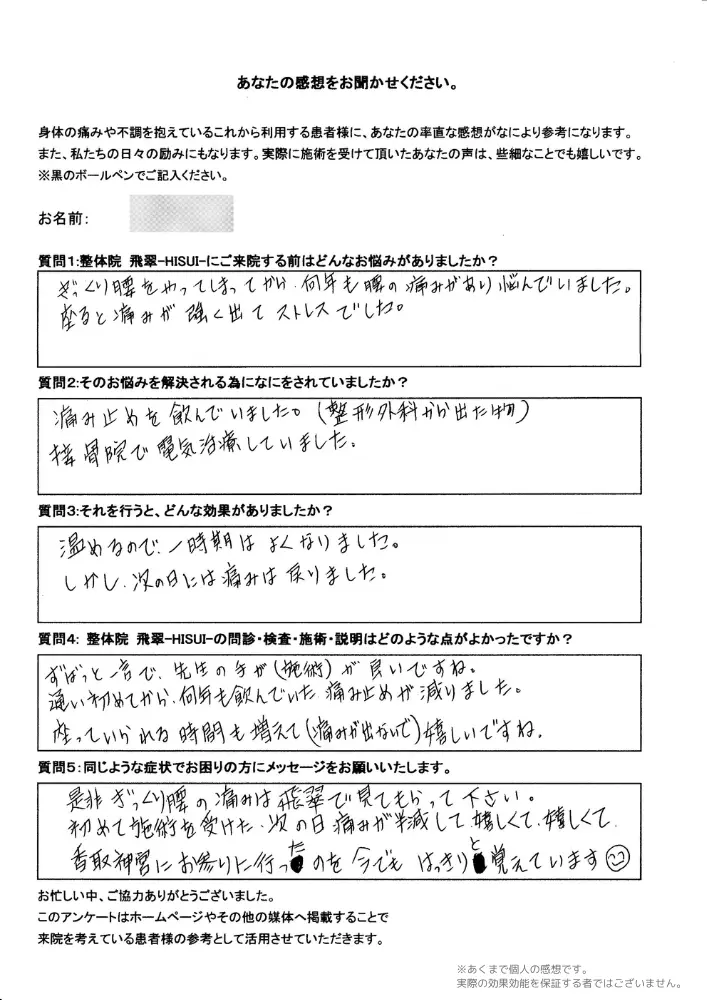 あなたの感想をお聞かせください。
身体の痛みや不調を抱えているこれから利用する患者様に、あなたの率直な感想がなにより参考になります。
また、私たちの日々の励みにもなります。実際に施術を受けて頂いたあなたの声は、些細なことでも嬉しいです。
※黒のボールペンでご記入ください。
お名前:
質問1:整体院 飛翠-HISUI-にご来院する前はどんなお悩みがありましたか？
ぎっくり腰をやってしまってから、何年も腰の痛みがあり悩んでいました。
座ると痛みが強く出てストレスでした。
質問2:そのお悩みを解決される為になにをされていましたか？
痛み止めを飲んでいました。(整形外科から出た物)
接骨院で電気治療していました。
質問3:それを行うと、どんな効果がありましたか？
温めるので、一時期はよくなりました。
しかし、次の日には痛みは戻りました。
質問4: 整体院 飛翠-HISUI-の問診・検査・施術・説明はどのような点がよかったですか？
ずばっと一言で、先生の手が(施術)が良いですね。
通い初めてから、何年も飲んでいた痛み止めが減りました。
座っていられる時間も増えて(痛みが出ないで)嬉しいですね。
質問5:同じような症状でお困りの方にメッセージをお願いいたします。
是非ぎっくり腰の痛みは飛翠で見てもらって下さい。
初めて施術を受けた、次の日痛みが半減して、嬉しくて、嬉しくて、
香取神宮にお参りに行ったのを今でもはっきりと覚えています
お忙しい中、ご協力ありがとうございました。
このアンケートはホームページやその他の媒体へ掲載することで
来院を考えている患者様の参考として活用させていただきます。
※あくまで個人の感想です。
実際の効果効能を保証する者ではございません。